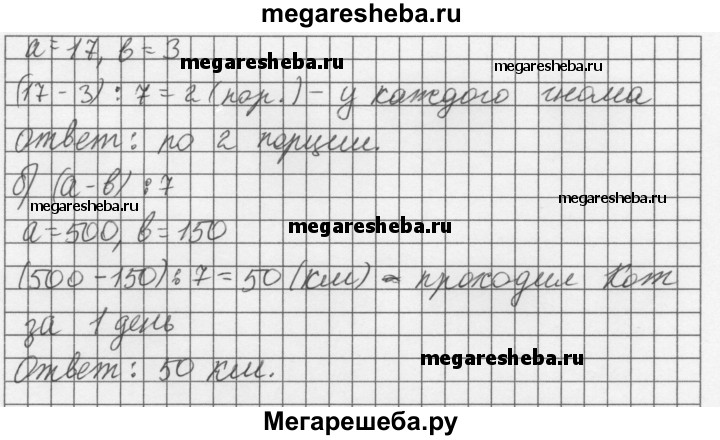 megaresheba.ru
a = 17, в = 3
megaresheba.ru
megaresheba.ru
(17 - 3) : 7 = 2 (пор.) - у каждого гнома
Ответ: по 2 порции.
б) (а - в) : 7
megaresheba.ru
megaresheba.ru
a = 500, в = 150
megaresheba.ru
(500 - 150) : 7 = 50 (км) - проходил Кот
за 1 день
megaresheba.ru
Ответ: 50 км.
Мегарешеба.ру